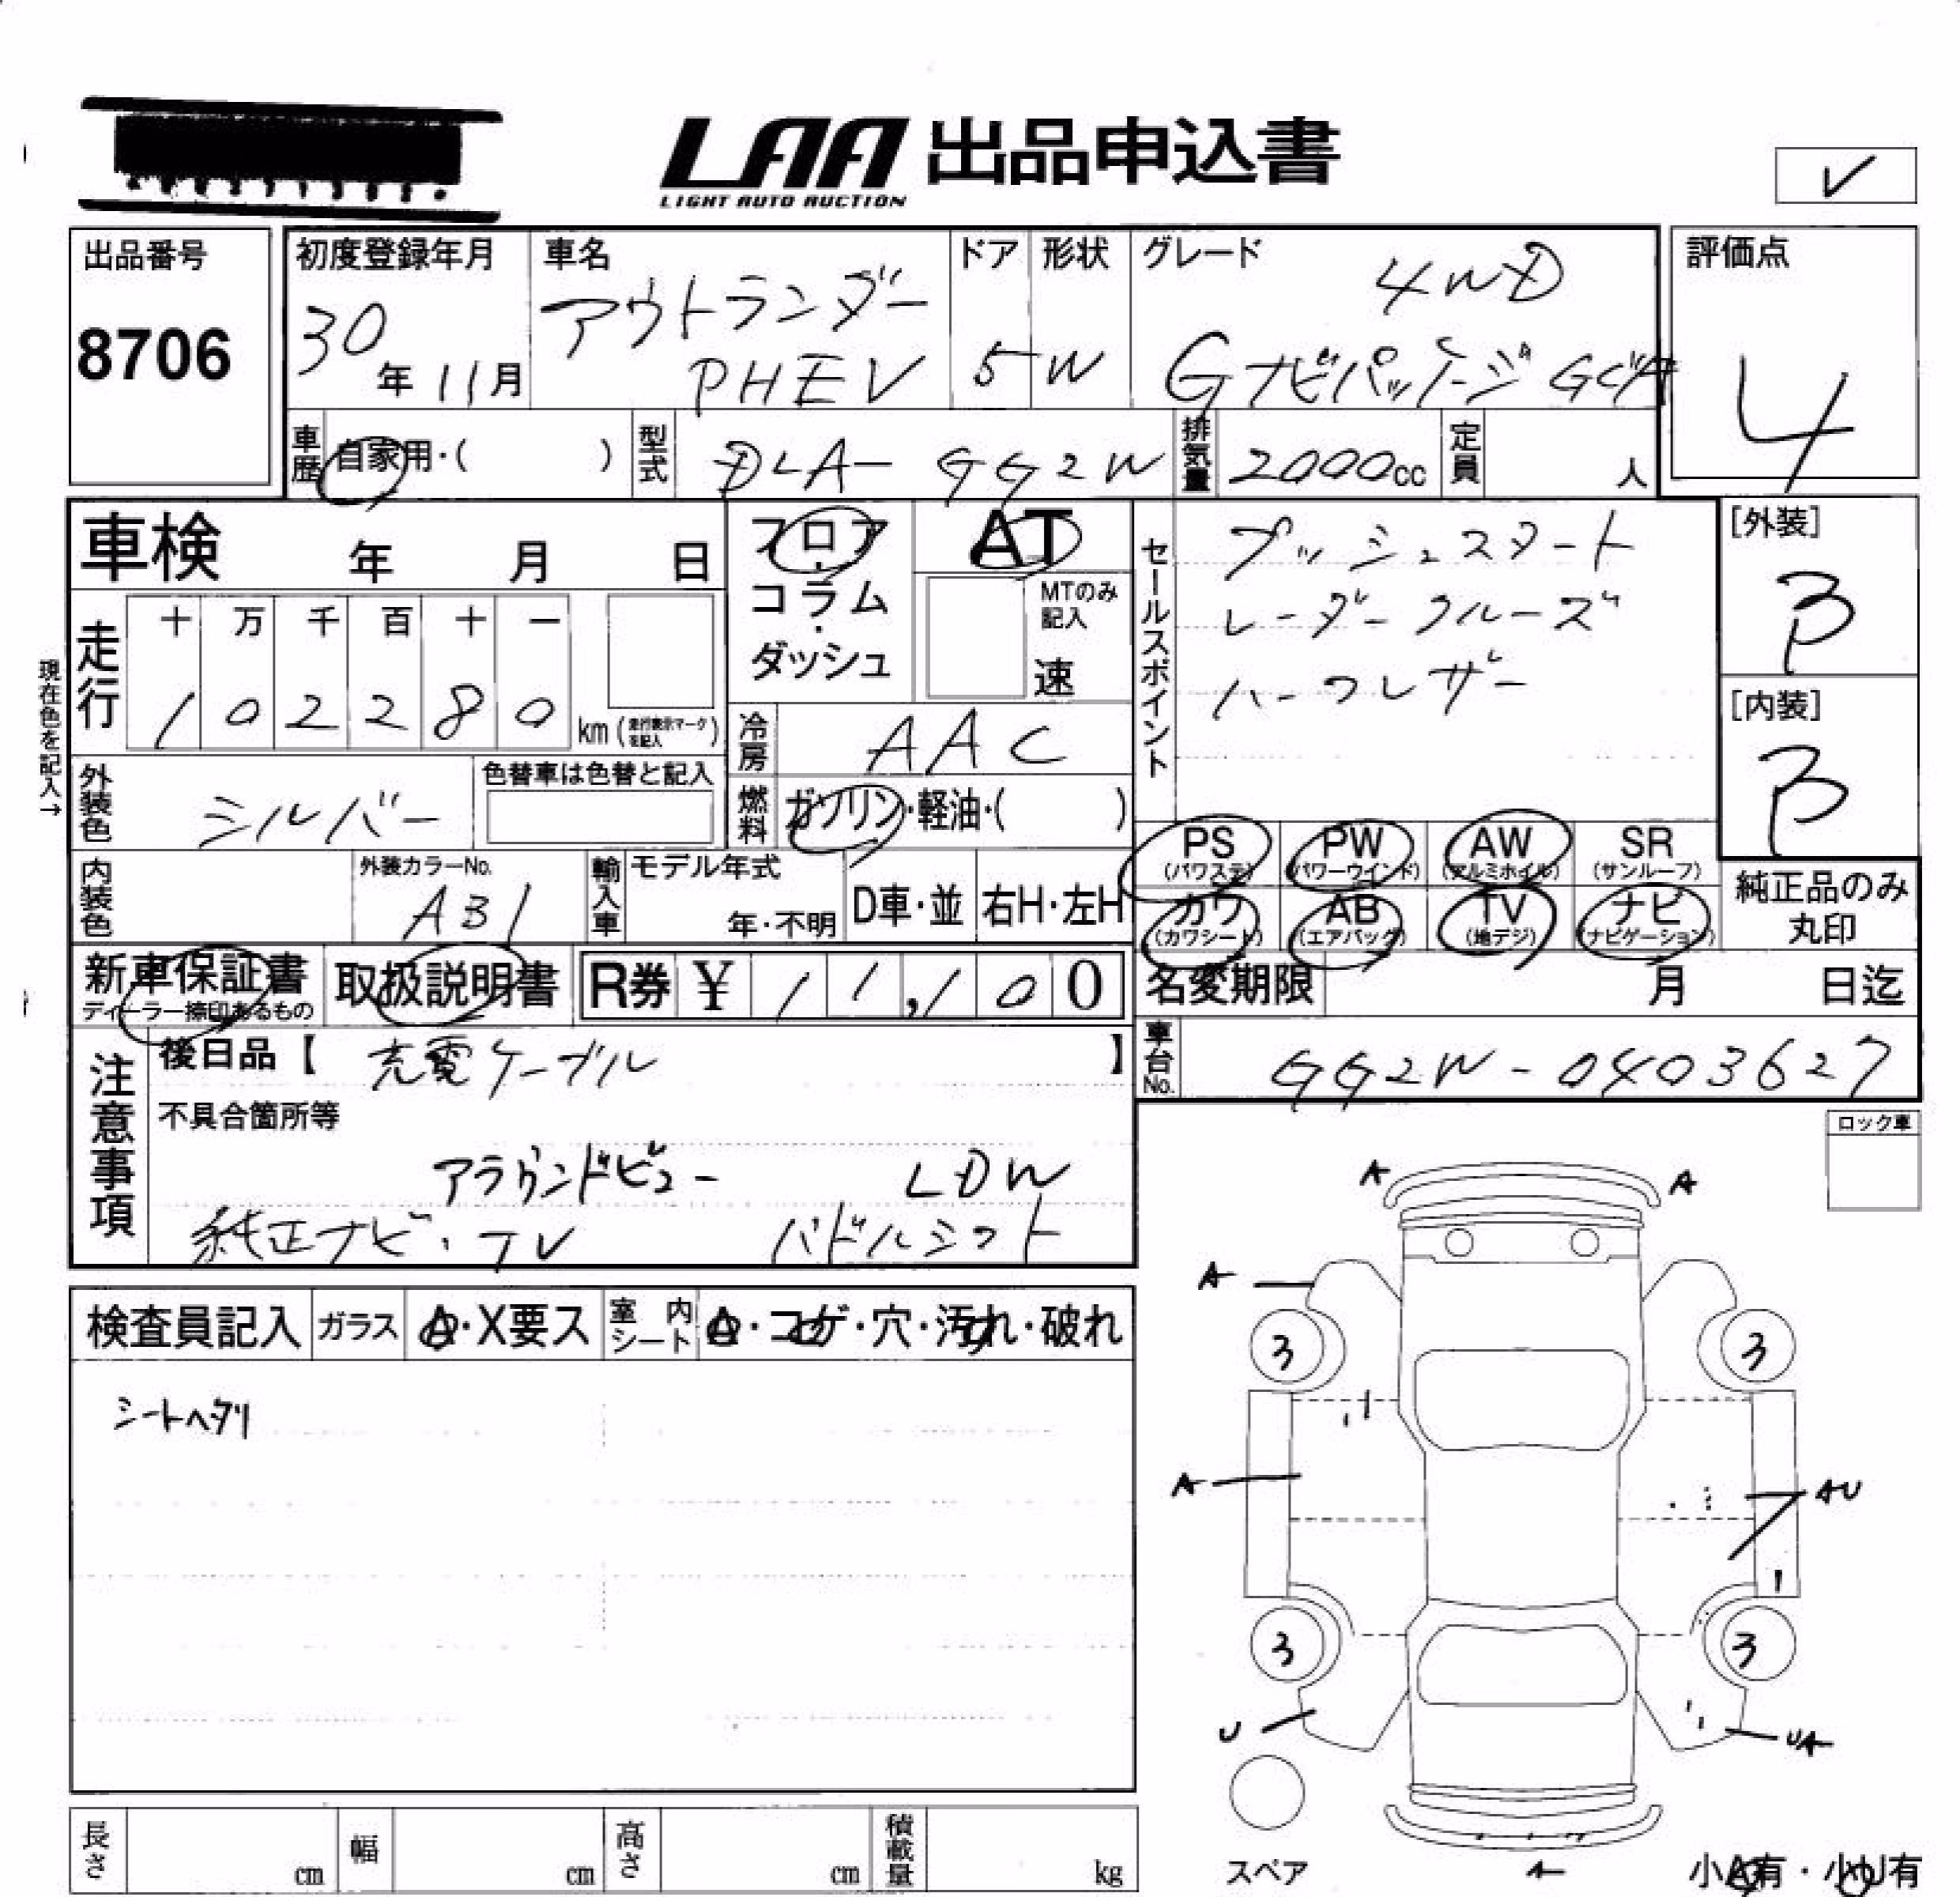 LAA 出品申込書
LIGHT AUTO AUCTION
✓
出品番号
8706
初度登録年月
30年11月
車名
アウトランダー
PHEV
ドア
5
形状
W
グレード
4WD
Gナビパッケージ
評価点
4
車歴
自家用・( )
型式
DLA-GG2W
排気量
2000cc
定員
人
車検 年 月 日
フロア・コラム・ダッシュ
AT
MTのみ記入
速
走行
十 万 千 百 十 一
1 0 2 2 8 0 km
(走行表示マークを記入)
現在色を記入→
冷房
AAC
外装色
シルバー
色替車は色替と記入
燃料
ガソリン・軽油・( )
内装色
外装カラーNo.
AB1
輸入車
モデル年式
年・不明
D車・並
右H・左H
セールスポイント
プッシュスタート
レーダークルーズ
ハーフレザー
[外装]
B
[内装]
B
PS (パワステ)
PW (パワーウインド)
AW (アルミホイル)
SR (サンルーフ)
カワ (カワシート)
AB (エアバッグ)
TV (地デジ)
ナビ (ナビゲーション)
純正品のみ丸印
新車保証書
ディーラー捺印あるもの
取扱説明書
R券 ¥11,100
名変期限 月 日迄
車台No.
GG2W-0403627
注意事項
後日品【 充電ケーブル 】
不具合箇所等
アラウンドビュー LDW
純正ナビ・TV パドルシフト
ロック車
検査員記入
ガラス
A・X要ス
室内シート
A・コゲ・穴・汚れ・破れ
シートヘタリ
A A
A
3 3
A AU
3 3
U UA
スペア
A
小A有・小U有
長さ cm
幅 cm
高さ cm
積載量 kg